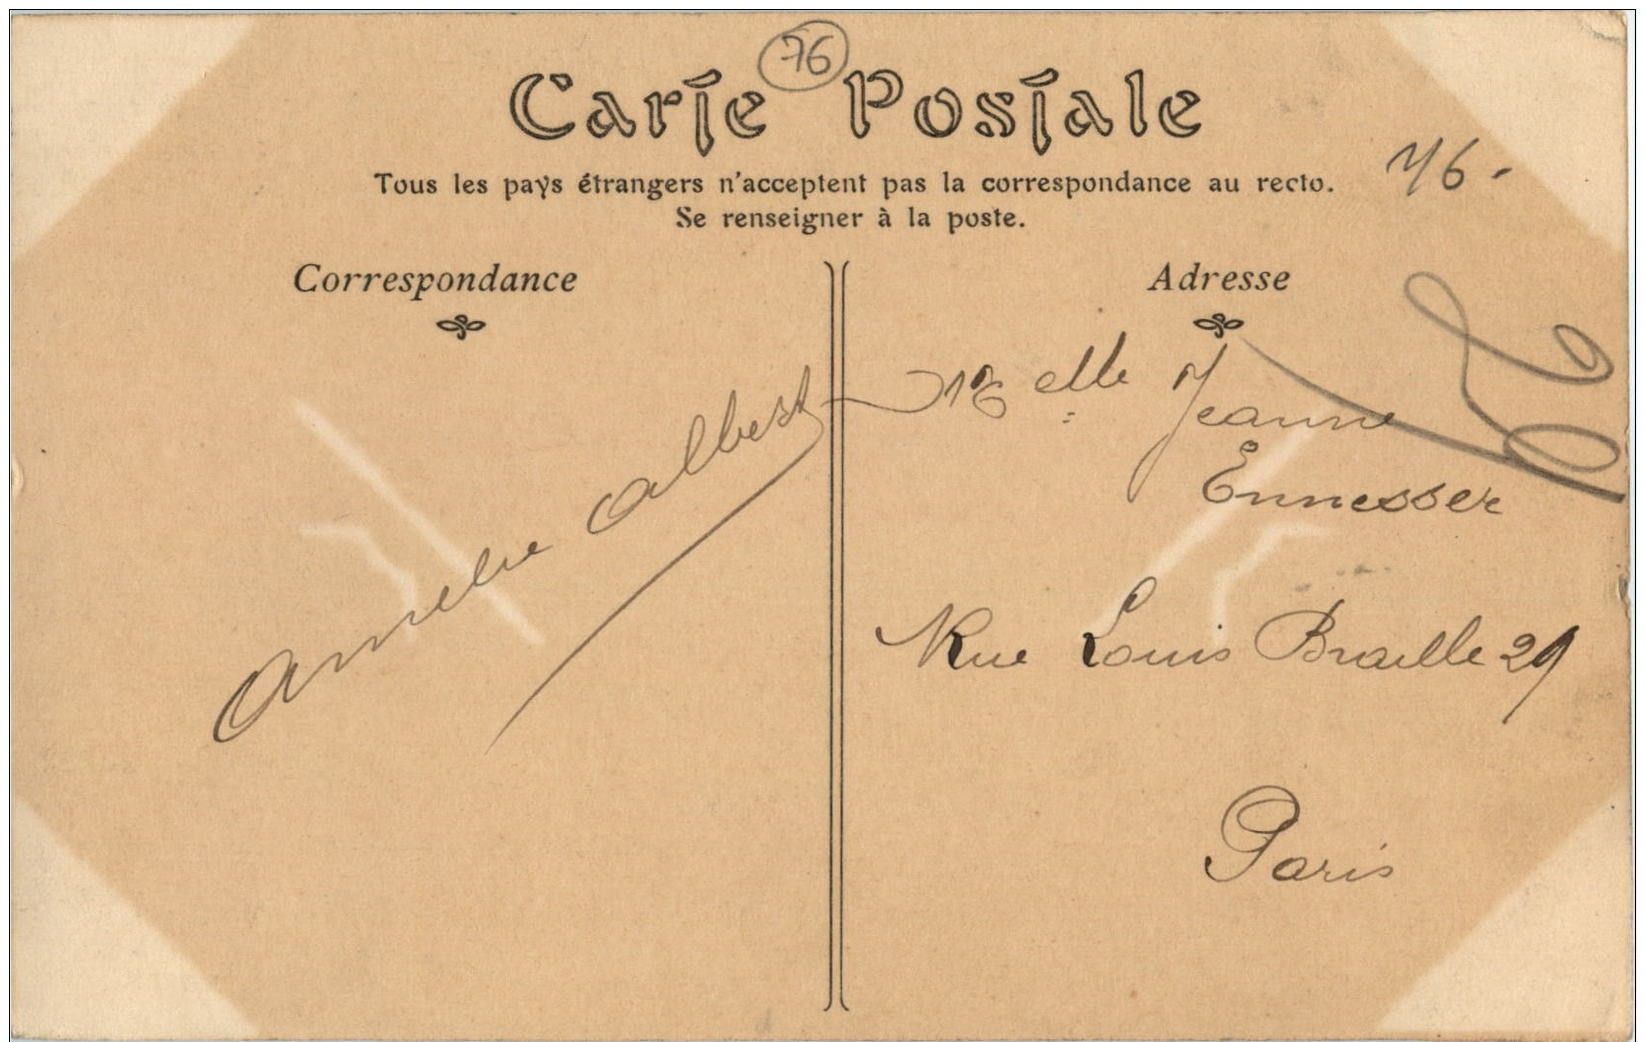 76
Carte Postale
76-
Tous les pays étrangers n'acceptent pas la correspondance au recto.
Se renseigner à la poste.
Correspondance
Amelie Albert
Adresse
Melle Jeanne
Ennesser
Rue Louis Braille 29
Paris